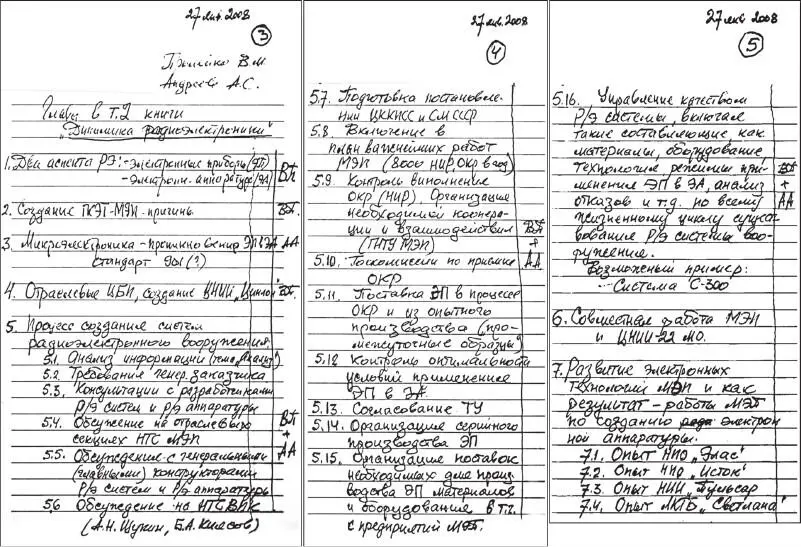 27 янв. 2008
3
Пролейко В.М.
Андреев А.С.
Главы в т.2 книги
"Динамика радиоэлектроники"
1. Два аспекта РЭ: - электронные приборы (ЭП)
- электронн. аппаратура (ЭА)
ВП
2. Создание ГКЭТ-МЭП - причины
ВП.
3. Микроэлектроника - причины внедр ЭП в ЭА
АА
Стандарт 901 (?)
4. Отраслевые ЦБП, создание ЦНИИ "Циклон"
ВП.
5. Процесс создания систем
радиоэлектронного вооружения.
5.1. Анализ информации
5.2 Требование генер. заказчика
5.3. Консультации с разработчиками
Р/Э систем и Р/Э аппаратуры
5.4. Обсуждение на отраслевых
секциях НТС МЭП
ВП
+
АА
5.5. Обсуждение с генеральными
(главными) конструкторами
Р/Э систем и Р/Э аппаратуры
5.6 Обсуждение на НТС ВПК
(А.Н. Щукин, Б.А. Киясов)
27 янв. 2008
4
5.7. Подготовка постановле-
ний ЦК КПСС и СМ СССР
5.8. Включение в
план важнейших работ
МЭП (8000 НИР, ОКР в год)
5.9. Контроль выполнения
ОКР (НИР). Организация
необходимой коопера-
ции и взаимодействия
(ГНТУ МЭП)
ВП
+
АА
5.10. Госкомиссии по приемке
ОКР
5.11. Поставка ЭП в процессе
ОКР и из опытного
производства (про-
межуточные образцы)
5.12 Контроль оптимальности
условий применения
ЭП в ЭА.
5.13. Согласование ТУ
5.14. Организация серийного
производства ЭП
5.15. Организация поставок
необходимых для произ-
водства ЭП материалов
и оборудования в т.ч.
с предприятий МЭП.
27 янв 2008
5
5.16. Управление качеством
Р/Э системы, включая
такие составляющие, как
материалы, оборудование,
технология, режимы при-
менения ЭП в ЭА, анализ
отказов и т.д. по всему
жизненному циклу сущест-
вования Р/Э системы воо-
ружение.
ВП
+
АА
Возможный пример:
- Система С-300
6. Совместная работа МЭП
и ЦНИИ-22 МО.
7. Развитие электронных
технологий МЭП и как
результат - работы МЭП
по созданию электрон
ной аппаратуры.
7.1. Опыт НПО "Элас"
7.2. Опыт НПО "Исток"
7.3. Опыт НИИ "Пульсар
7.4. Опыт ЛКТБ "Светлана"